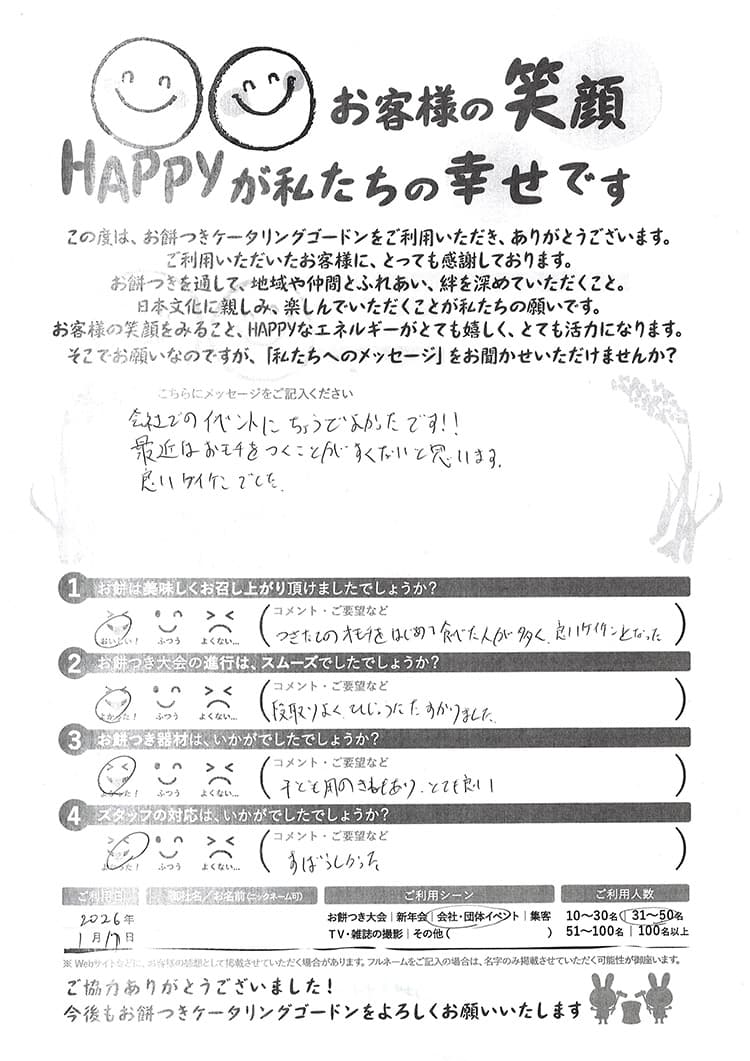 お客様の笑顔
HAPPYが私たちの幸せです
この度は、お餅つきケータリングゴードンをご利用いただき、ありがとうございます。
ご利用いただいたお客様に、とっても感謝しております。
お餅つきを通して、地域や仲間とふれあい、絆を深めていただくこと。
日本文化に親しみ、楽しんでいただくことが私たちの願いです。
お客様の笑顔をみること、HAPPYなエネルギーがとても嬉しく、とても活力になります。
そこでお願いなのですが、「私たちへのメッセージ」をお聞かせいただけませんか?
こちらにメッセージをご記入ください
会社でのイベントにちょうどよかったです!!
最近はおモチをつくことがすくないと思います。
良いタイケンでした。
1 お餅は美味しくお召し上がり頂けましたでしょうか?
コメント・ご要望など
おいしい! ふつう よくない…
つきたてのオモチをはじめて食べた人が多く、良いケイケンとなった
2 お餅つき大会の進行は、スムーズでしたでしょうか?
コメント・ご要望など
よかった! ふつう よくない…
段取りよく、ひじょうにたすかりました。
3 お餅つき器材は、いかがでしたでしょうか?
コメント・ご要望など
よかった! ふつう よくない…
子ども用のきねもあり、とても良い
4 スタッフの対応は、いかがでしたでしょうか?
コメント・ご要望など
よかった! ふつう よくない…
すばらしかった
ご利用日 御社名/お名前(ニックネーム可) ご利用シーン ご利用人数
2026年
1月17日
お餅つき大会|新年会|会社・団体イベント|集客
TV・雑誌の撮影|その他( )
10〜30名|31〜50名
51〜100名|100名以上
※Webサイトなどに、お客様の感想として掲載させていただく場合があります。フルネームをご記入の場合は、名字のみ掲載させていただく可能性が御座います。
ご協力ありがとうございました!
今後もお餅つきケータリングゴードンをよろしくお願いいたします